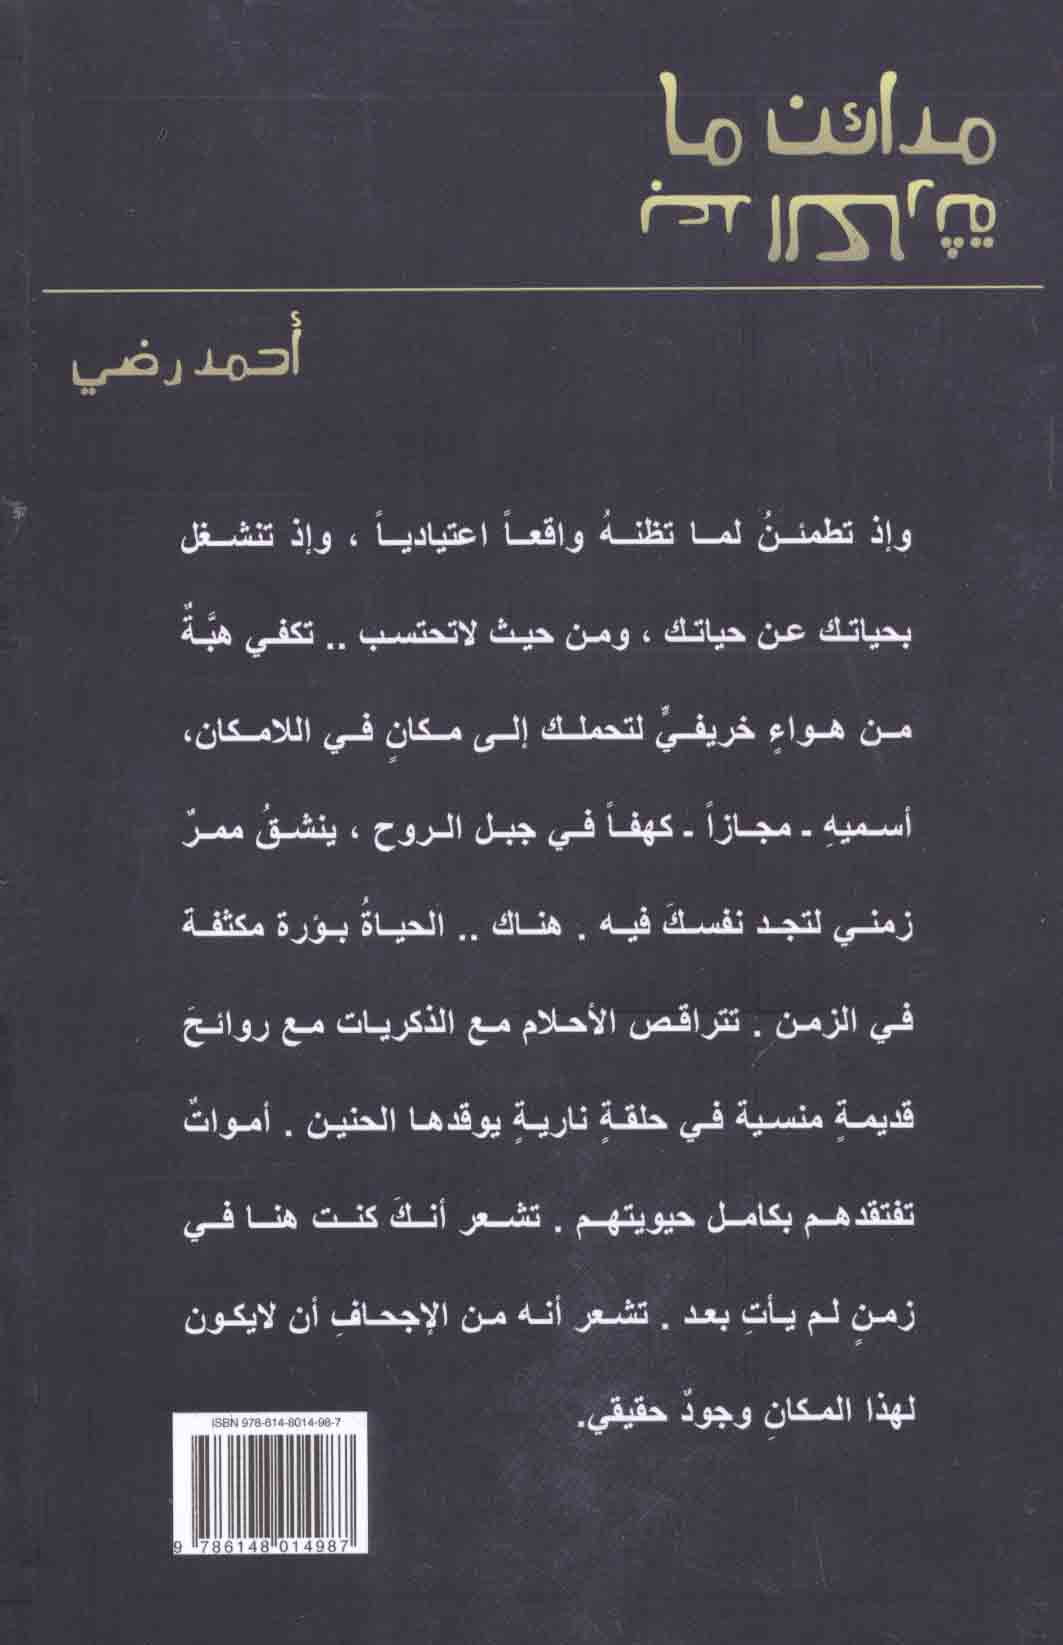 مدائن ما
بعد الكارثة
أحمد رضي
وإذ تطمئنُ لما تظنهُ واقعاً اعتيادياً ، وإذ تنشغل
بحياتك عن حياتك ، ومن حيث لاتحتسب .. تكفي هبَّةٌ
من هواءٍ خريفيٍّ لتحملك إلى مكانٍ في اللامكان،
أسميهِ - مجازاً - كهفاً في جبل الروح ، ينشقُ ممرٌ
زمني لتجد نفسكَ فيه . هناك .. الحياةُ بؤرة مكثفة
في الزمن . تتراقص الأحلام مع الذكريات مع روائحَ
قديمةٍ منسية في حلقةٍ ناريةٍ يوقدها الحنين . أمواتٌ
تفتقدهم بكامل حيويتهم . تشعر أنكَ كنت هنا في
زمنٍ لم يأتِ بعد . تشعر أنه من الإجحافِ أن لايكون
لهذا المكانِ وجودٌ حقيقي.
ISBN 978-614-8014-98-7
9 786148 014987